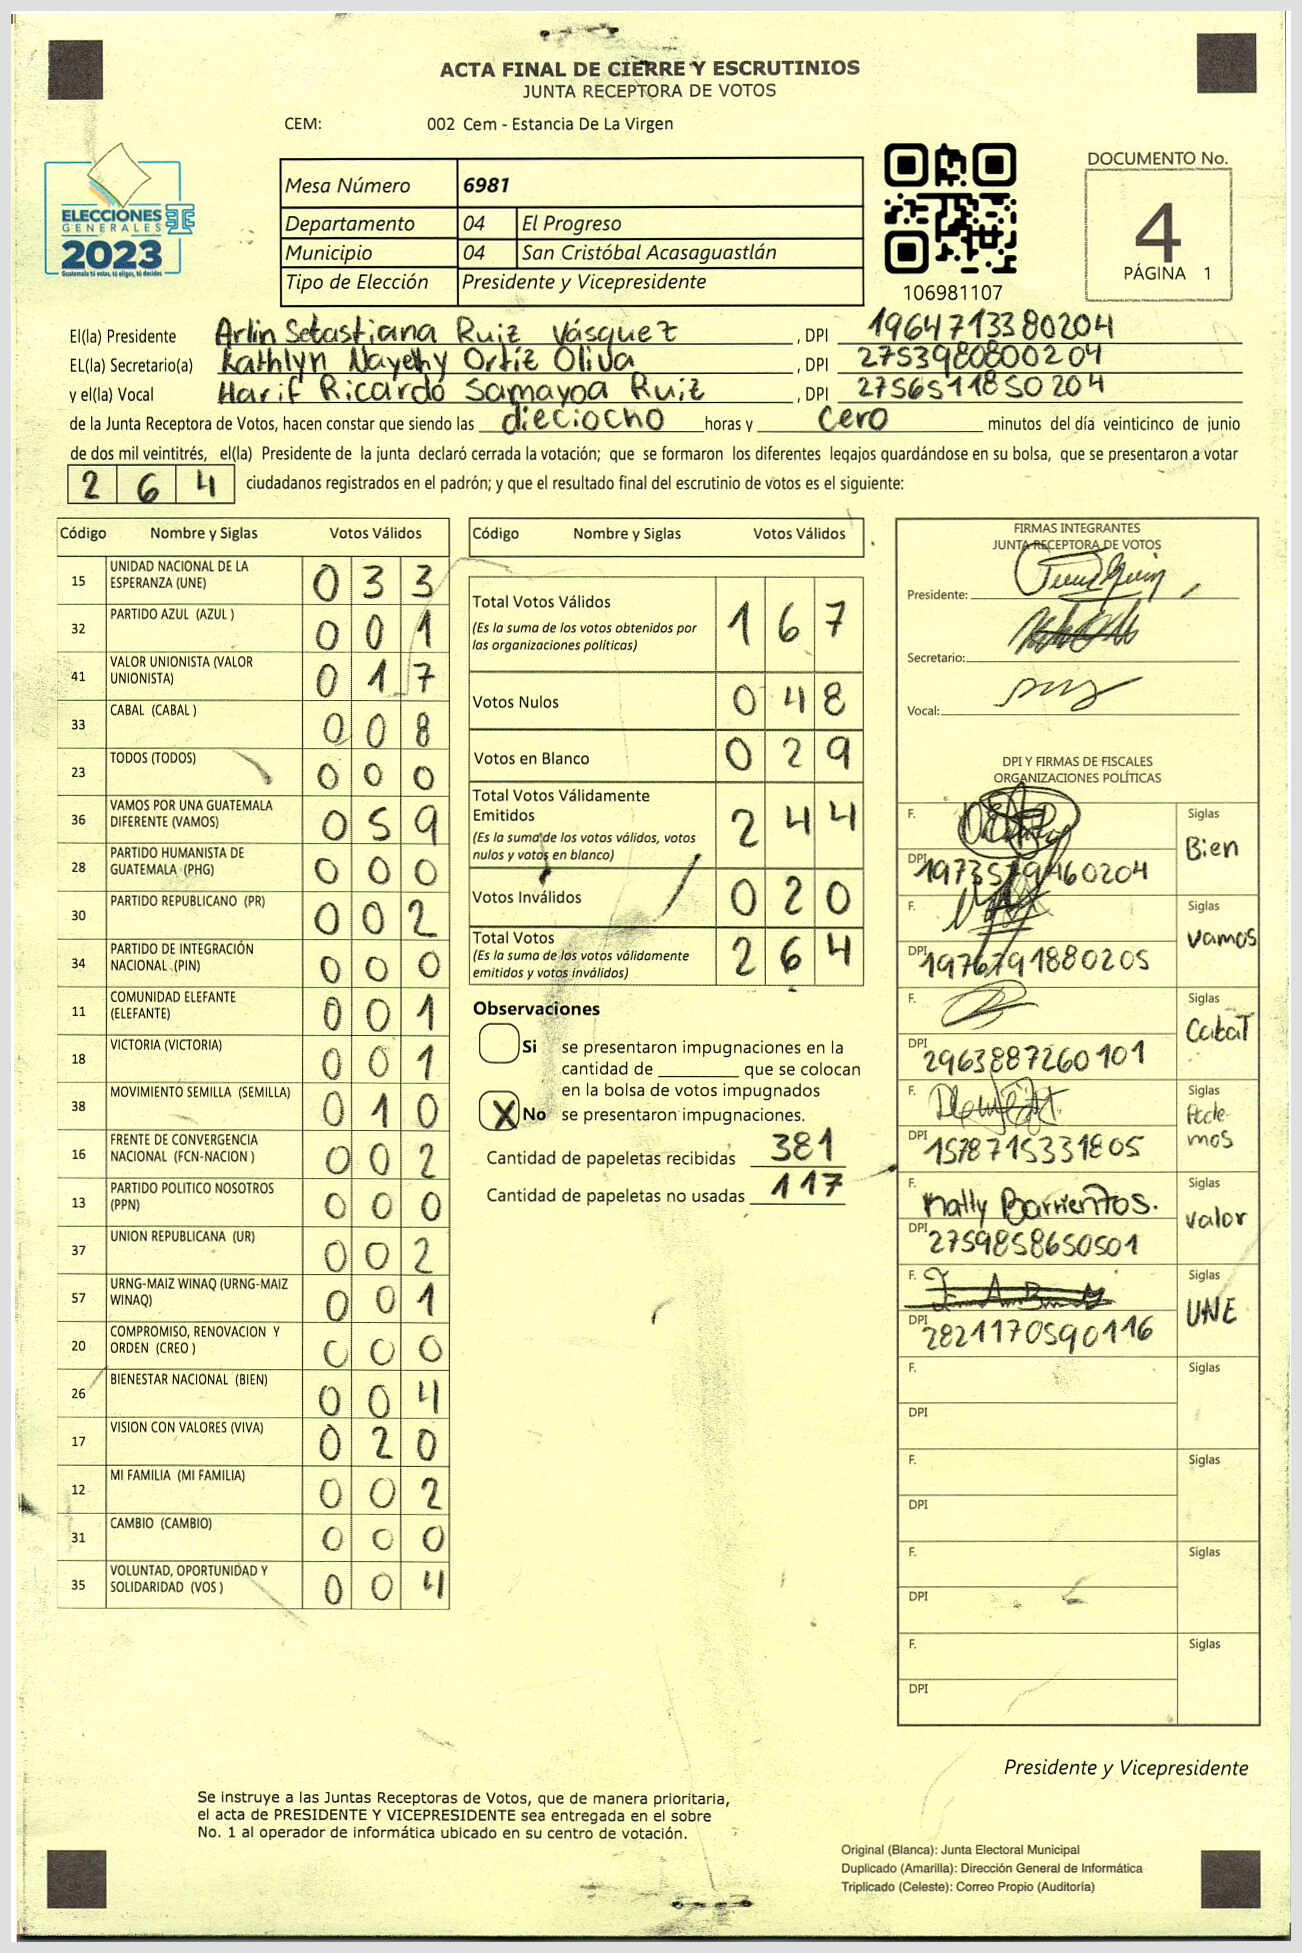 ACTA FINAL DE CIERRE Y ESCRUTINIOS
JUNTA RECEPTORA DE VOTOS
CEM: 002 Cem - Estancia De La Virgen
ELECCIONES
GENERALES
2023
Guatemala tú votas, tú eliges, tú decides
Mesa Número 6981
Departamento 04 El Progreso
Municipio 04 San Cristóbal Acasaguastlán
Tipo de Elección Presidente y Vicepresidente
106981107
DOCUMENTO No.
4
PÁGINA 1
El(la) Presidente Arlin Setastiana Ruiz Vásquez , DPI 1964713380204
EL(la) Secretario(a) Kathlyn Nayehy Ortíz Oliva , DPI 2753980800204
y el(la) Vocal Harif Ricardo Samayoa Ruiz , DPI 2756511850204
de la Junta Receptora de Votos, hacen constar que siendo las dieciocho horas y cero minutos del día veinticinco de junio
de dos mil veintitrés, el(la) Presidente de la junta declaró cerrada la votación; que se formaron los diferentes legajos guardándose en su bolsa, que se presentaron a votar
2 6 4 ciudadanos registrados en el padrón; y que el resultado final del escrutinio de votos es el siguiente:
Código Nombre y Siglas Votos Válidos
15 UNIDAD NACIONAL DE LA ESPERANZA (UNE) 0 3 3
32 PARTIDO AZUL (AZUL ) 0 0 1
41 VALOR UNIONISTA (VALOR UNIONISTA) 0 1 7
33 CABAL (CABAL ) 0 0 8
23 TODOS (TODOS) 0 0 0
36 VAMOS POR UNA GUATEMALA DIFERENTE (VAMOS) 0 5 9
28 PARTIDO HUMANISTA DE GUATEMALA (PHG) 0 0 0
30 PARTIDO REPUBLICANO (PR) 0 0 2
34 PARTIDO DE INTEGRACIÓN NACIONAL (PIN) 0 0 0
11 COMUNIDAD ELEFANTE (ELEFANTE) 0 0 1
18 VICTORIA (VICTORIA) 0 0 1
38 MOVIMIENTO SEMILLA (SEMILLA) 0 1 0
16 FRENTE DE CONVERGENCIA NACIONAL (FCN-NACION ) 0 0 2
13 PARTIDO POLITICO NOSOTROS (PPN) 0 0 0
37 UNION REPUBLICANA (UR) 0 0 2
57 URNG-MAIZ WINAQ (URNG-MAIZ WINAQ) 0 0 1
20 COMPROMISO, RENOVACION Y ORDEN (CREO ) 0 0 0
26 BIENESTAR NACIONAL (BIEN) 0 0 4
17 VISION CON VALORES (VIVA) 0 2 0
12 MI FAMILIA (MI FAMILIA) 0 0 2
31 CAMBIO (CAMBIO) 0 0 0
35 VOLUNTAD, OPORTUNIDAD Y SOLIDARIDAD (VOS ) 0 0 4
Código Nombre y Siglas Votos Válidos
Total Votos Válidos 1 6 7
(Es la suma de los votos obtenidos por
las organizaciones políticas)
Votos Nulos 0 4 8
Votos en Blanco 0 2 9
Total Votos Válidamente
Emitidos 2 4 4
(Es la suma de los votos válidos, votos
nulos y votos en blanco)
Votos Inválidos 0 2 0
Total Votos 2 6 4
(Es la suma de los votos válidamente
emitidos y votos inválidos)
Observaciones
Si se presentaron impugnaciones en la
cantidad de ________ que se colocan
en la bolsa de votos impugnados
X No se presentaron impugnaciones.
Cantidad de papeletas recibidas 381
Cantidad de papeletas no usadas 117
FIRMAS INTEGRANTES
JUNTA RECEPTORA DE VOTOS
Presidente:
Secretario:
Vocal:
DPI Y FIRMAS DE FISCALES
ORGANIZACIONES POLÍTICAS
F. Siglas
Bien
DPI
F. Siglas
Vamos
DPI 1976791880205
F. Siglas
CabaT
DPI 2963887260101
F. Siglas
mos
DPI 1578715331805
F. Nally Barrientos. Siglas
valor
DPI 2759858650501
F. Siglas
UNE
DPI 2821170590116
F. Siglas
DPI
F. Siglas
DPI
F. Siglas
DPI
F. Siglas
DPI
Presidente y Vicepresidente
Se instruye a las Juntas Receptoras de Votos, que de manera prioritaria,
el acta de PRESIDENTE Y VICEPRESIDENTE sea entregada en el sobre
No. 1 al operador de informática ubicado en su centro de votación.
Original (Blanca): Junta Electoral Municipal
Duplicado (Amarilla): Dirección General de Informática
Triplicado (Celeste): Correo Propio (Auditoría)